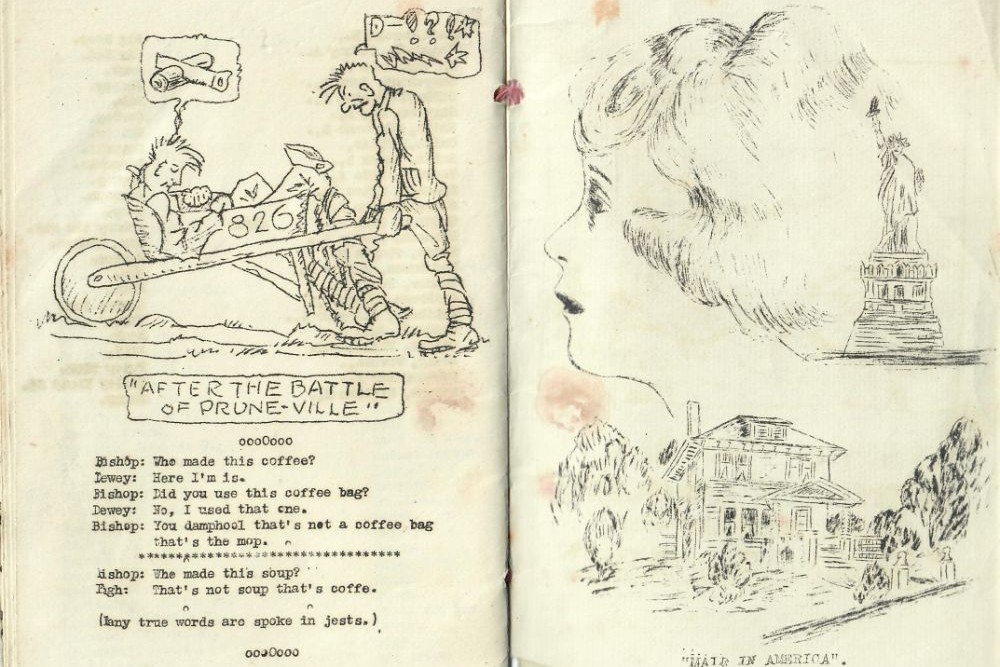 826
"AFTER THE BATTLE
OF PRUNE-VILLE"
oooOooo
Bishop: Who made this coffee?
Dewey: Here I'm is.
Bishop: Did you use this coffee bag?
Dewey: No, I used that one.
Bishop: You damphool that's not a coffee bag
that's the mop.
***********************************
Bishop: Who made this soup?
That's not soup that's coffe.
(Many true words are spoke in jests.)
oooOooo
"MAID IN AMERICA".